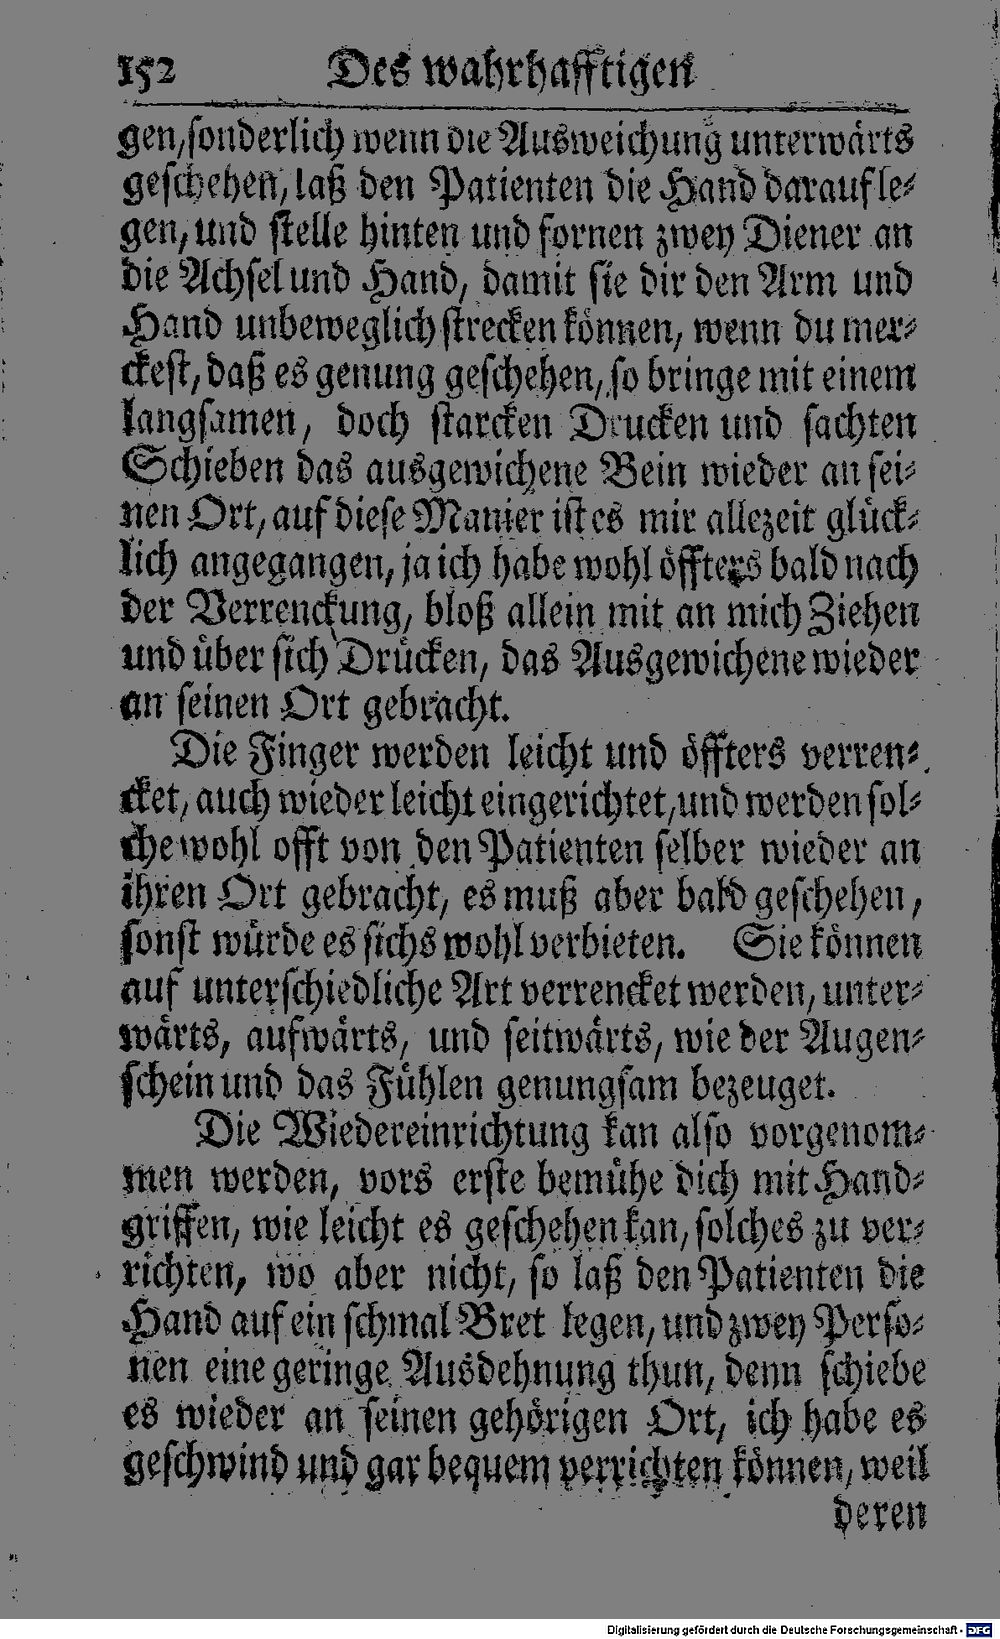 152 Des wahrhafftigen
gen, sonderlich wenn die Ausweichung unterwärts
geschehen, laß den Patienten die Hand darauf le-
gen, und stelle hinten und fornen zwey Diener an
die Achsel und Hand, damit sie dir den Arm und
Hand unbeweglich strecken können, wenn du mer-
ckest, daß es genung geschehen, so bringe mit einem
langsamen, doch starcken Drucken und sachten
Schieben das ausgewichene Bein wieder an sei-
nen Ort, auf diese Manier ist es mir allezeit glück-
lich angegangen, ja ich habe wohl öffters bald nach
der Verrenckung, bloß allein mit an mich Ziehen
und über sich Drücken, das Ausgewichene wieder
an seinen Ort gebracht.
Die Finger werden leicht und öffters verren-
cket, auch wieder leicht eingerichtet, und werden sol-
che wohl offt von den Patienten selber wieder an
ihren Ort gebracht, es muß aber bald geschehen,
sonst würde es sichs wohl verbieten. Sie können
auf unterschiedliche Art verrencket werden, unter-
wärts, aufwärts, und seitwärts, wie der Augen-
schein und das Fühlen genungsam bezeuget.
Die Wiedereinrichtung kan also vorgenom-
men werden, vors erste bemühe dich mit Hand-
griffen, wie leicht es geschehen kan, solches zu ver-
richten, wo aber nicht, so laß den Patienten die
Hand auf ein schmal Bret legen, und zwey Perso-
nen eine geringe Ausdehnung thun, denn schiebe
es wieder an seinen gehörigen Ort, ich habe es
geschwind und gar bequem verrichten können, weil
deren
Digitalisierung gefördert durch die Deutsche Forschungsgemeinschaft - DFG